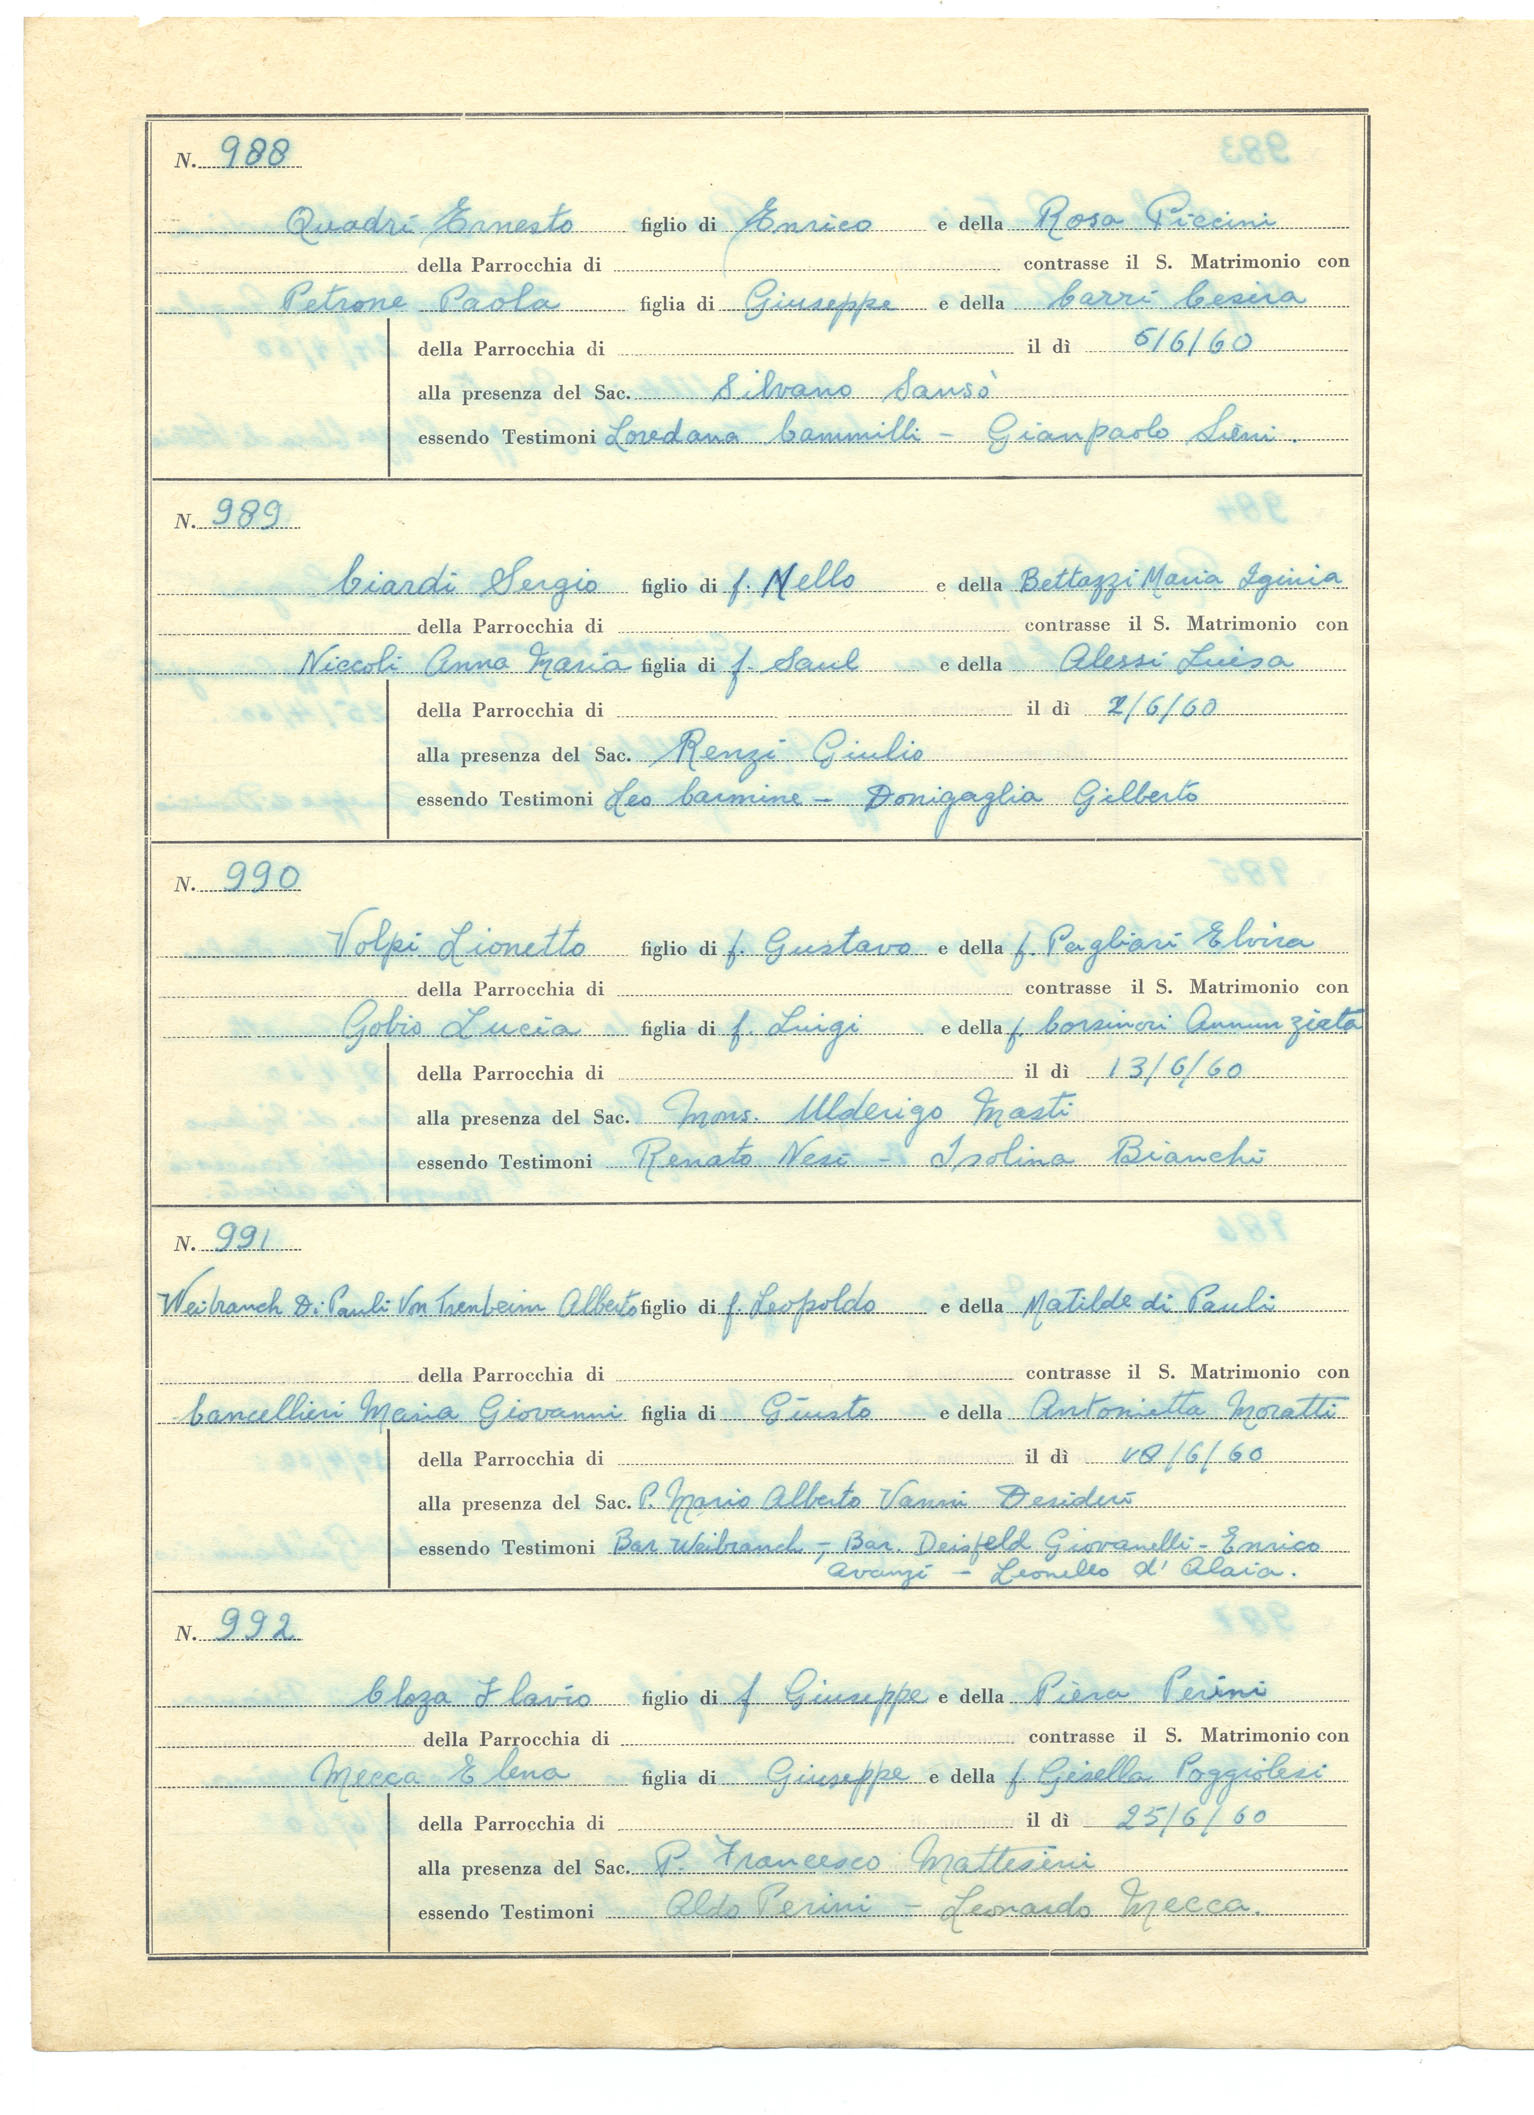 N. 988
Quadri Ernesto figlio di Enrico e della Rosa Piccini
della Parrocchia di contrasse il S. Matrimonio con
Petrone Paola figlia di Giuseppe e della Carri Cesira
della Parrocchia di il dì 5/6/60
alla presenza del Sac. Silvano Sansò
essendo Testimoni Loredana Cammilli - Gianpaolo Sieni.
N. 989
Ciardi Sergio figlio di f. Nello e della Bettazzi Maria Iginia
della Parrocchia di contrasse il S. Matrimonio con
Niccoli Anna Maria figlia di f. Saul e della Alessi Luisa
della Parrocchia di il dì 2/6/60
alla presenza del Sac. Renzi Giulio
essendo Testimoni Leo Carmine - Donigaglia Gilberto
N. 990
Volpi Lionetto figlio di f. Gustavo e della f. Pagliari Elvira
della Parrocchia di contrasse il S. Matrimonio con
Gobio Lucia figlia di f. Luigi e della f. Corsinori Annunziata
della Parrocchia di il dì 13/6/60
alla presenza del Sac. Mons. Ulderigo Masti
essendo Testimoni Renato Nesi - Isolina Bianchi
N. 991
Weibranch Di Pauli Von Alberto figlio di f. Leopoldo e della Matilde di Pauli
della Parrocchia di contrasse il S. Matrimonio con
Cancellieri Maria Giovanni figlia di Giusto e della Antonietta Moratti
della Parrocchia di il dì /6/60
alla presenza del Sac. P. Mario Alberto Vanni Desideri
essendo Testimoni Bar Weibranch -, Bar. Deisfeld Giovanelli - Enrico
Avanzi - Leonello d' Alaia.
N. 992
Cloza Flavio figlio di f Giuseppe e della Piera Perini
della Parrocchia di contrasse il S. Matrimonio con
Mecca Elena figlia di Giuseppe e della f Gisella Poggiolesi
della Parrocchia di il dì 25/6/60
alla presenza del Sac. P. Francesco Mattesini
essendo Testimoni Aldo Perini - Leonardo Mecca.